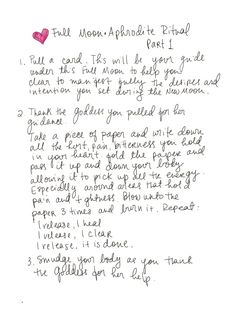 Full Moon • Aphrodite Ritual
Part 1
1. Pull a card. This will be your guide
under this Full Moon to help you
clear to manifest fully the desires and
intention you set during the New Moon.
2. Thank the goddess you pulled for her
guidance.
Take a piece of paper and write down
all the hurt, pain, bitterness you hold
in your heart. fold the paper and
pass it up and down your body
allowing it to pick up all the energy.
Especially around areas that hold
pain and tightness. Blow unto the
paper 3 times and burn it. Repeat:
I release, I heal
I release, I clear
I release, it is done.
3. Smudge your body as you thank
the Goddess for her help.